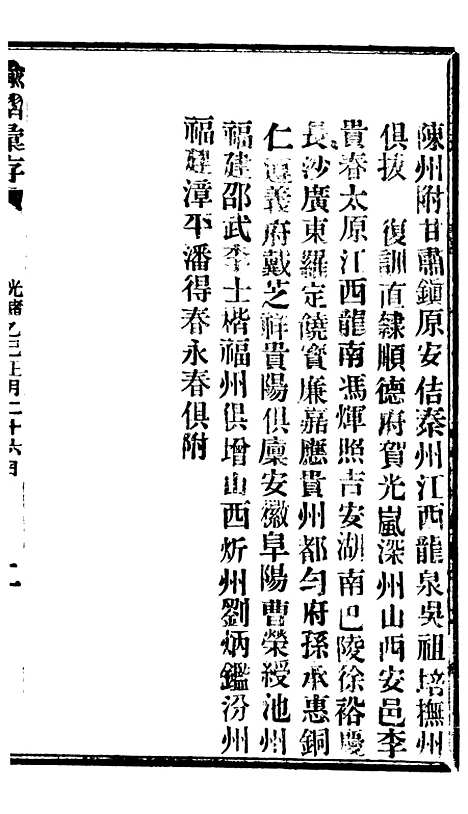 陳州附甘肅鎮原安佶秦州江西龍泉吳祖培撫州
俱拔　復訓直隸順德府賀光嵐深州山西安邑李
貴春太原江西龍南馮煇照吉安湖南巴陵徐裕慶
長沙廣東羅定饒寶廉嘉應貴州都勻府孫承惠銅
仁遵義府戴芝祥貴陽俱廩安徽阜陽曹榮綬池州
福建邵武李士楷福州俱增山西炘州劉炳鑑汾州
福建漳平潘得春永春俱附
諭摺彙存
光緒乙巳正月二十六日
二